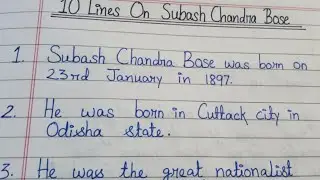 10 Lines On Subash Chandra Bose
1. Subash Chandra Bose was born on
23rd January in 1897.
2. He was born in Cuttack city in
Odisha state.
3. He was the great nationalist